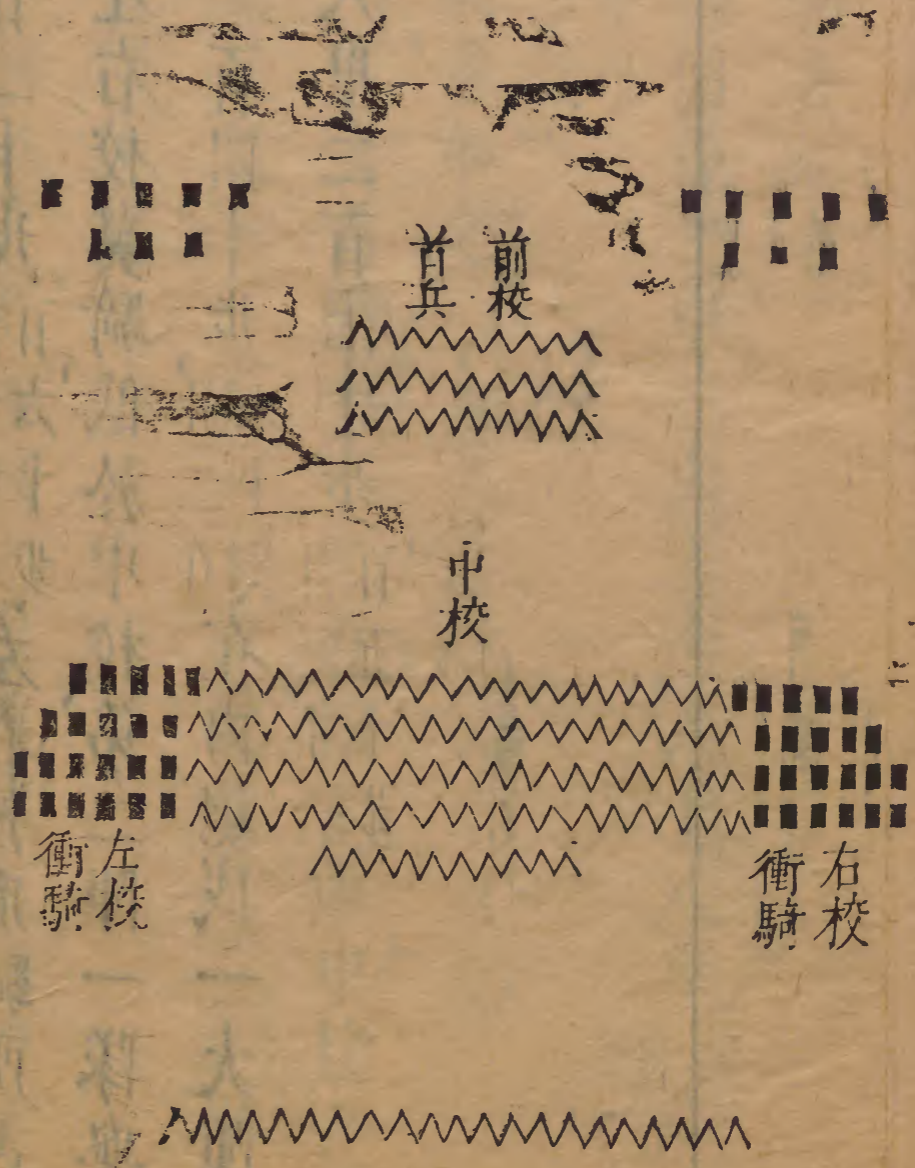 前校
首兵
中校
右校
衝騎
左校
衝騎